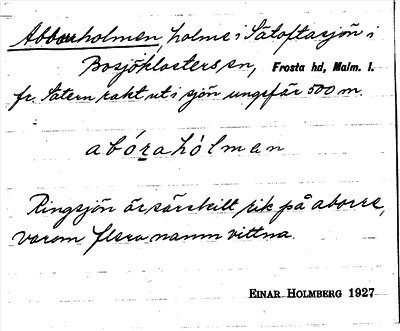 Abborrholmen, holme i Sätoftasjön i
Bosjöklosters sn, Frosta hd, Malm. l.
fr. Sätern rakt ut i sjön ungefär 500 m.
abórahòlman
Ringsjön är särskilt rik på aborre,
varom flera namn vittna.
EINAR HOLMBERG 1927